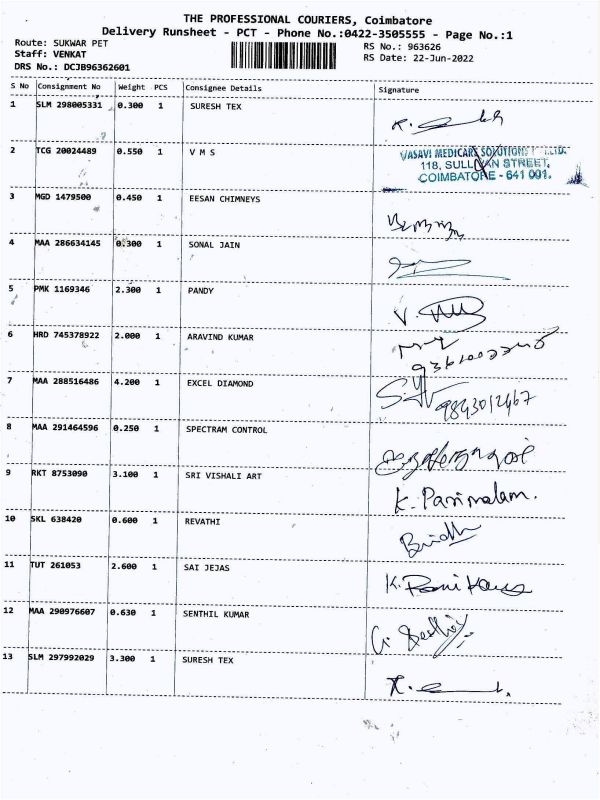 THE PROFESSIONAL COURIERS, Coimbatore
Delivery Runsheet - PCT - Phone No.:0422-3505555 - Page No.:1
Route: SUKWAR PET
Staff: VENKAT
DRS No.: DCJB96362601
RS No.: 963626
RS Date: 22-Jun-2022
S No Consignment No Weight PCS Consignee Details Signature
1 SLM 298005331 0.300 1 SURESH TEX
2 TCG 20024489 0.550 1 V M S
VASAVI MEDICARE
118, SULLIVAN STREET,
COIMBATORE - 641 001.
3 MGD 1479500 0.450 1 EESAN CHIMNEYS
4 MAA 286634145 0.300 1 SONAL JAIN
5 PMK 1169346 2.300 1 PANDY
6 HRD 745378922 2.000 1 ARAVIND KUMAR
7 MAA 288516486 4.200 1 EXCEL DIAMOND
9843012467
8 MAA 291464596 0.250 1 SPECTRAM CONTROL
9 RKT 8753090 3.100 1 SRI VISHALI ART K. Parimalam.
10 SKL 638420 0.600 1 REVATHI
11 TUT 261053 2.600 1 SAI JEJAS
12 MAA 290976607 0.630 1 SENTHIL KUMAR
13 SLM 297992029 3.300 1 SURESH TEX